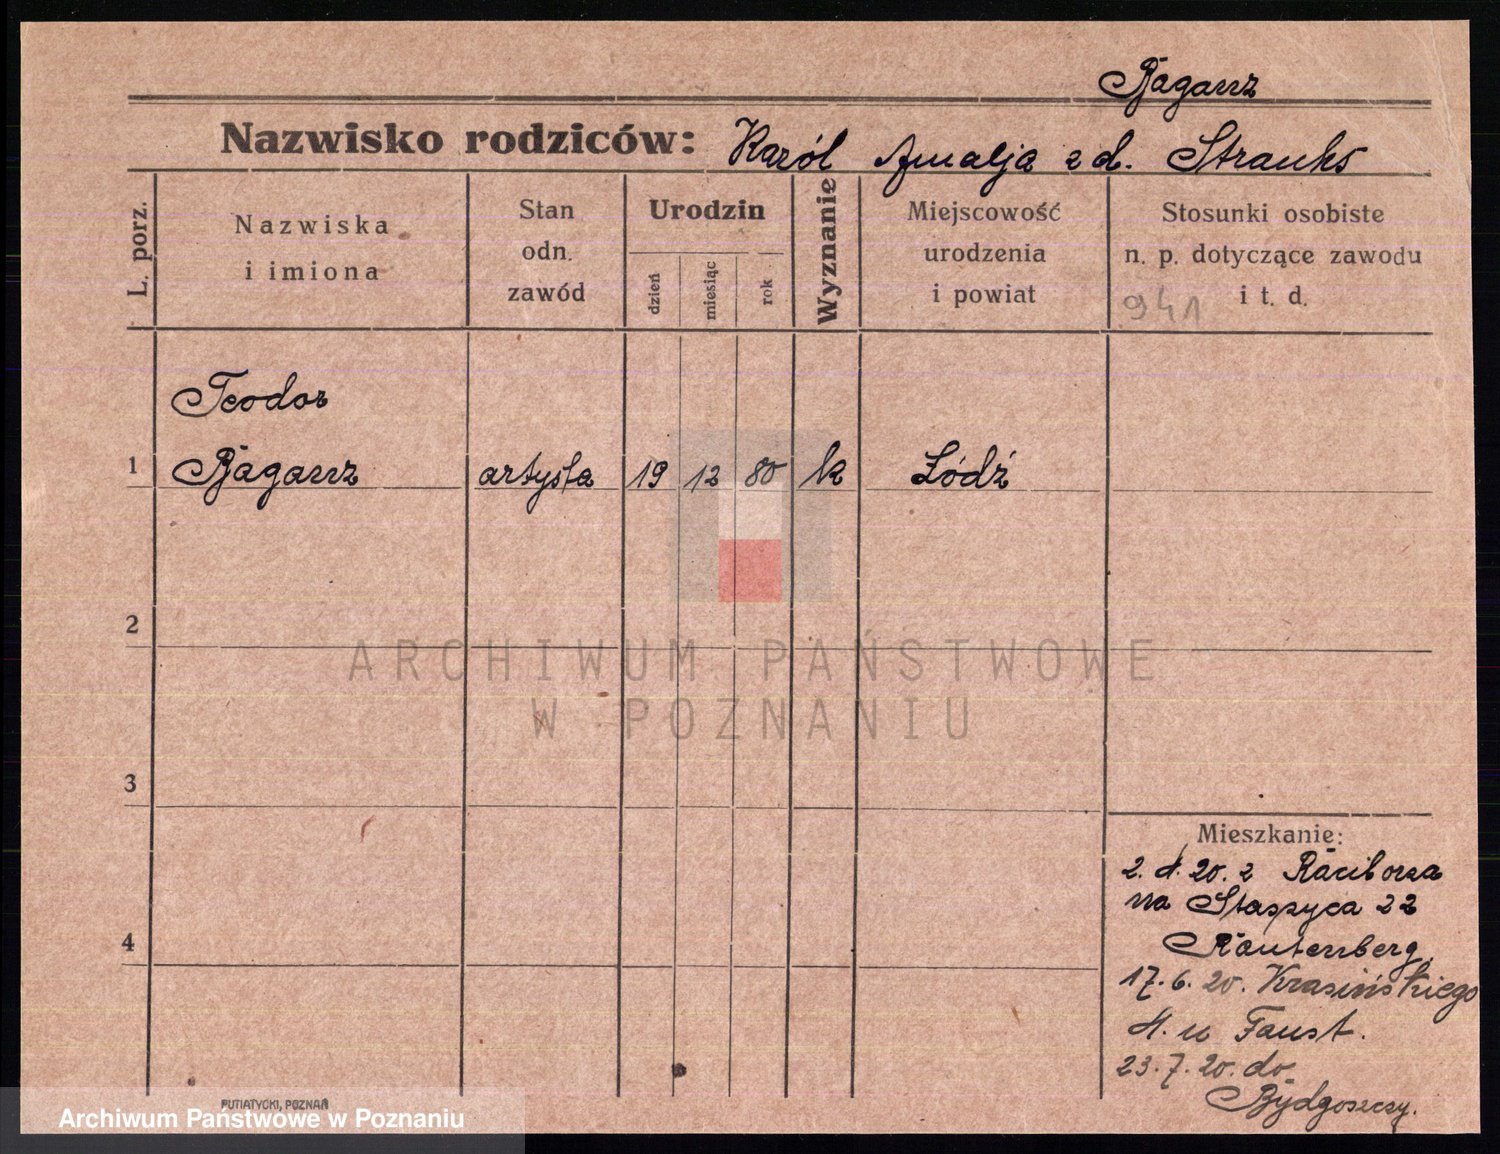 Bagarrz
Nazwisko rodziców: Karól Amalja z d. Strauhs
L. porz.
Nazwiska
i imiona
Stan
odn.
zawód
Urodzin
dzień
miesiąc
rok
Wyznanie
Miejscowość
urodzenia
i powiat
Stosunki osobiste
n. p. dotyczące zawodu
i t. d.
941
Teodor
1 Bagarrz artysta 19 12 80 k Łódź
2
3
4
ARCHIWUM PAŃSTWOWE
W POZNANIU
Mieszkanie:
2. 4. 20. z Raciborza
na Staszyca 22
Rautenberg.
17. 6. 20. Krasińskiego
4. u Faust.
23. 7. 20. do
Bydgoszczy.
PUTIATYCKI, POZNAŃ
Archiwum Państwowe w Poznaniu